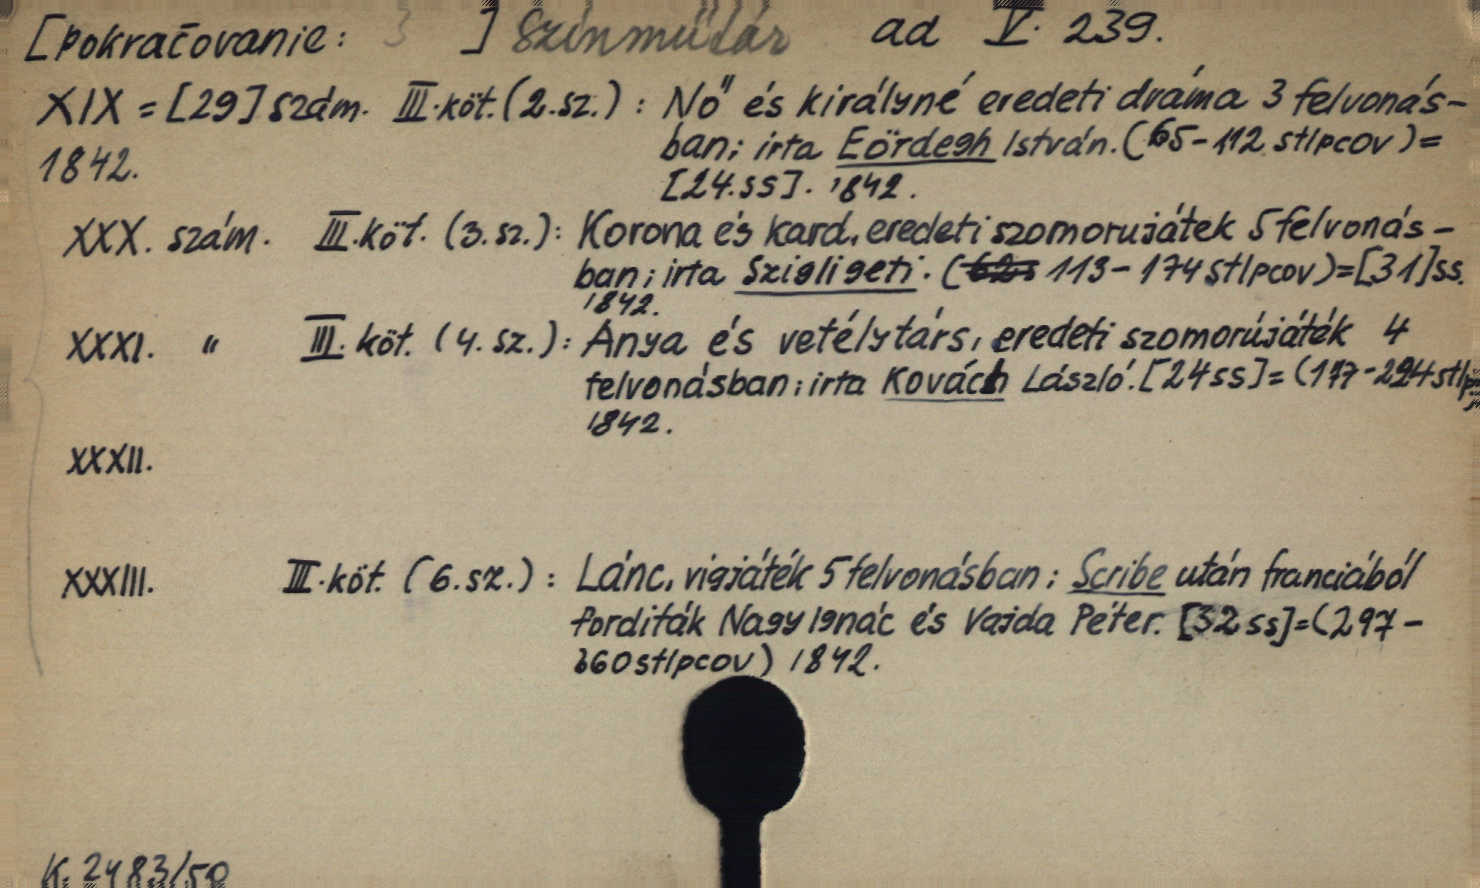 [pokračovanie: 3 ] Színműtár ad V. 239.
XIX = [29] szám. III. köt. (2. sz.) : Nő és királyné eredeti dráma 3 felvonás-
1842. ban; irta Eördegh István. (65-112 stĺpcov) =
[24. ss]. 1842.
XXX. szám. III. köt. (3. sz.): Korona és kard, eredeti szomorujátek 5 felvonás-
ban; irta Szigligeti. (113-174 stĺpcov) = [31] ss.
1842.
XXXI. " III. köt. (4. sz.): Anya és vetélytárs, eredeti szomorújáték 4
felvonásban; irta Kovách László. [24 ss] = (177-224 stĺp
1842.
XXXII.
XXXIII. III. köt. (6. sz.) : Lánc, vigjáték 5 felvonásban; Scribe után franciából
forditák Nagy Ignác és Vajda Péter. [32 ss] = (297-
360 stĺpcov) 1842.
K. 2483/50